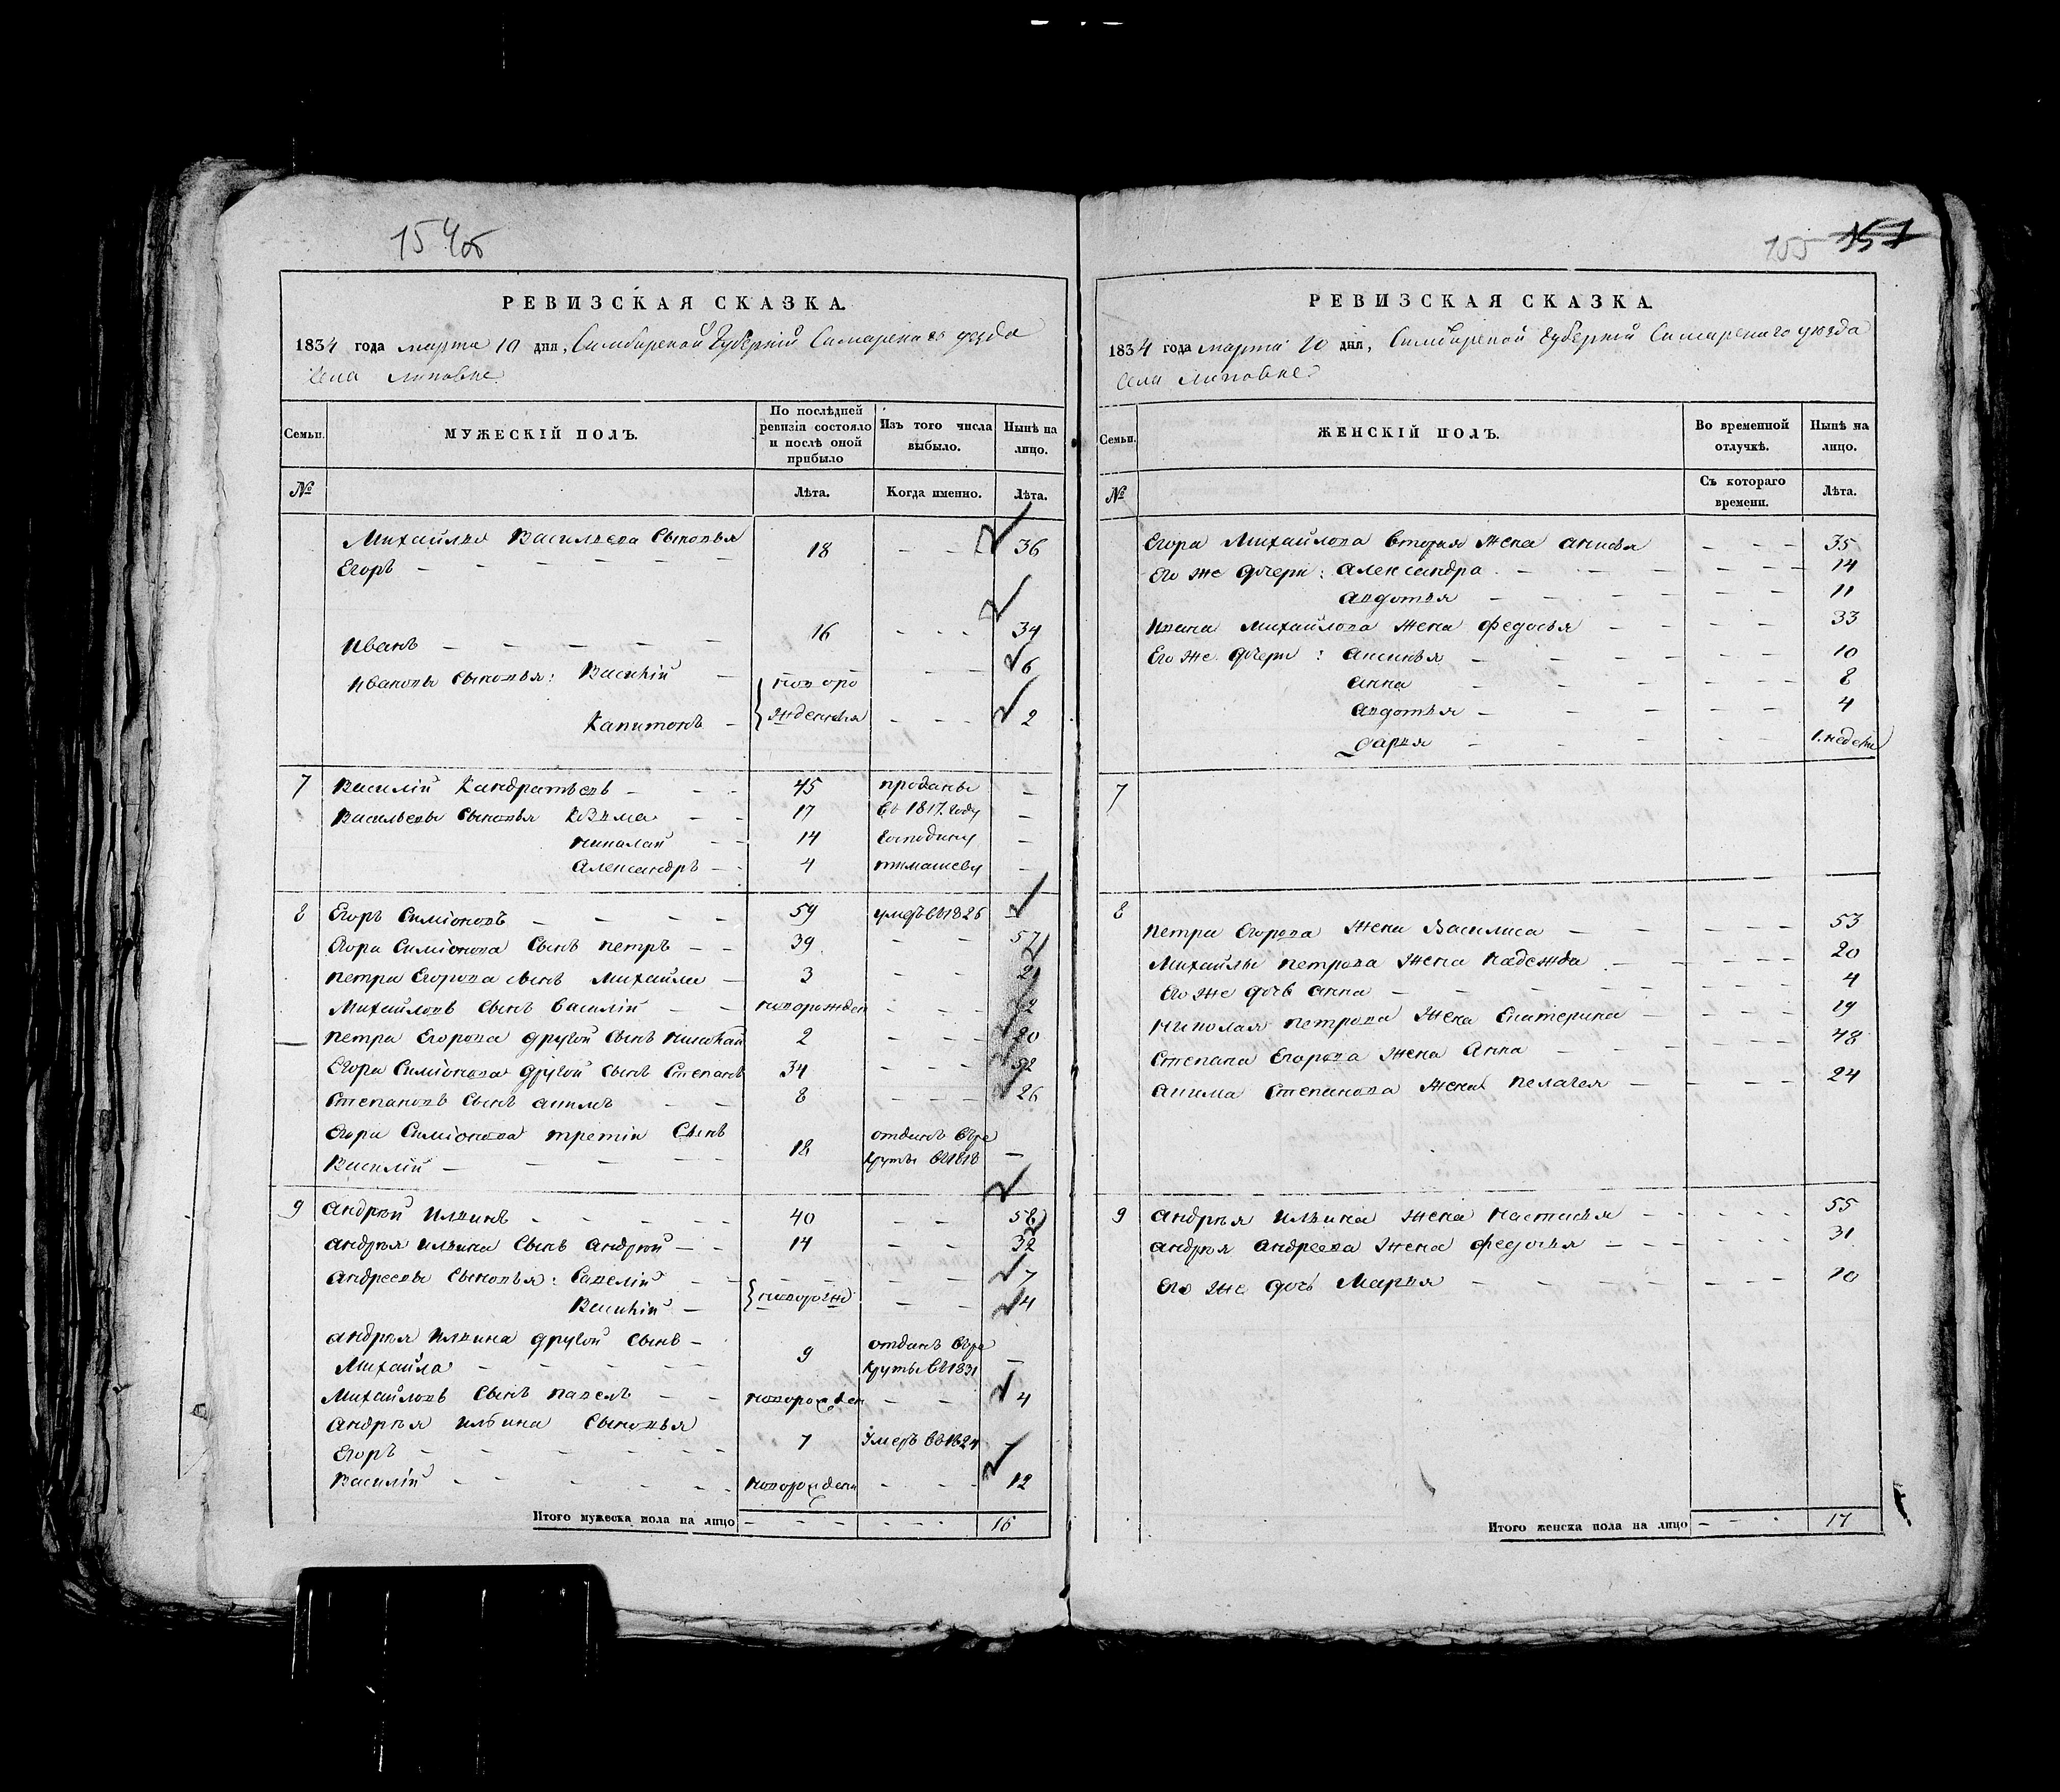 154об
РЕВИЗСКАЯ СКАЗКА.
1834 года марта 10 дня, Симбирской Губерній Самарскаго уезда
села Липовке
Семьи.
МУЖЕСКІЙ ПОЛЪ.
По послѣдней ревизіи состояло и послѣ оной прибыло
Изъ того числа выбыло.
Нынѣ на лицо.
№
Лѣта.
Когда именно.
Лѣта.
Михайлы Васильева сыновья
Егоръ - - - 18 - - - 36
Иванъ - - - 16 - - - 34
Ивановы сыновья: Василій - новоро - - 6
Капитонъ - жденныя - - - 2
7 Василій Кандратьевъ - - - 45 проданы -
Васильевы сыновья Козма - - 17 въ 1817. году -
Николай - - 14 господину -
Александръ - - 4 тимашеву -
8 Егоръ Симіоновъ - - - - 59 умеръ въ 1826 -
Егора Симіонова сынъ петръ - - 39 - - 57
петра Егорова сынъ Михайла - 3 - - 21
Михайловъ сынъ Василій - - новорожден - - - 2
петра Егорова другой сынъ Николай 2 - - - 20
Егора Симіонова другой сынъ Степанъ 34 - - - 52
Степановъ сынъ акимъ - - 8 - - - 26
Егора Симіонова третій сынъ
Василій - - - - 18 отданъ въ ре
круты въ 1818 -
9 андрѣй Ильинъ - - - - - 40 - - 58
андрѣя Ильина сынъ андрѣй - - 14 - - 32
андреевы сыновья: Савелій - - - - 7
Василій - новорожд - - 4
андрѣя Ильина другой сынъ -
Михайла - - - - 9 отданъ въ ре
круты въ 1831 -
Михайловъ сынъ павелъ - - новорожден - - 4
андрѣя Ильина сыновья
Егоръ - - - - 7 умеръ въ 1824 -
Василій - - - - новорожден - - - 12
Итого мужеска пола на лицо - - - - - - - 16
155 157
РЕВИЗСКАЯ СКАЗКА.
1834 года марта 10 дня, Симбирской Губерній Самарскаго уезда
села Липовке
Семьи.
ЖЕНСКІЙ ПОЛЪ.
Во временной отлучкѣ.
Нынѣ на лицо.
№
Съ котораго времени.
Лѣта.
Егора Михайлова вторая жена анисья - - - 35
Его же дочери: александра - - - 14
авдотья - - - 11
Ивана Михайлова жена федосья - - - 33
Его же дочери: аксинья - - - 10
анна - - - 8
авдотья - - - 4
дарья - - - 1. недели
7
8
петра Егорова жена Василиса - - - 53
Михайлы петрова жена надежда - - - 20
Его же дочь анна - - - 4
Николая петрова жена Екатерина - - - 19
Степана Егорова жена анна - - - 48
акима Степанова жена пелагея - - - 24
9 андрѣя Ильина жена настасья - - - 55
андрѣя андреева жена федосья - - - 31
Его же дочь Марья - - - 10
Итого женска пола на лицо - - - 17